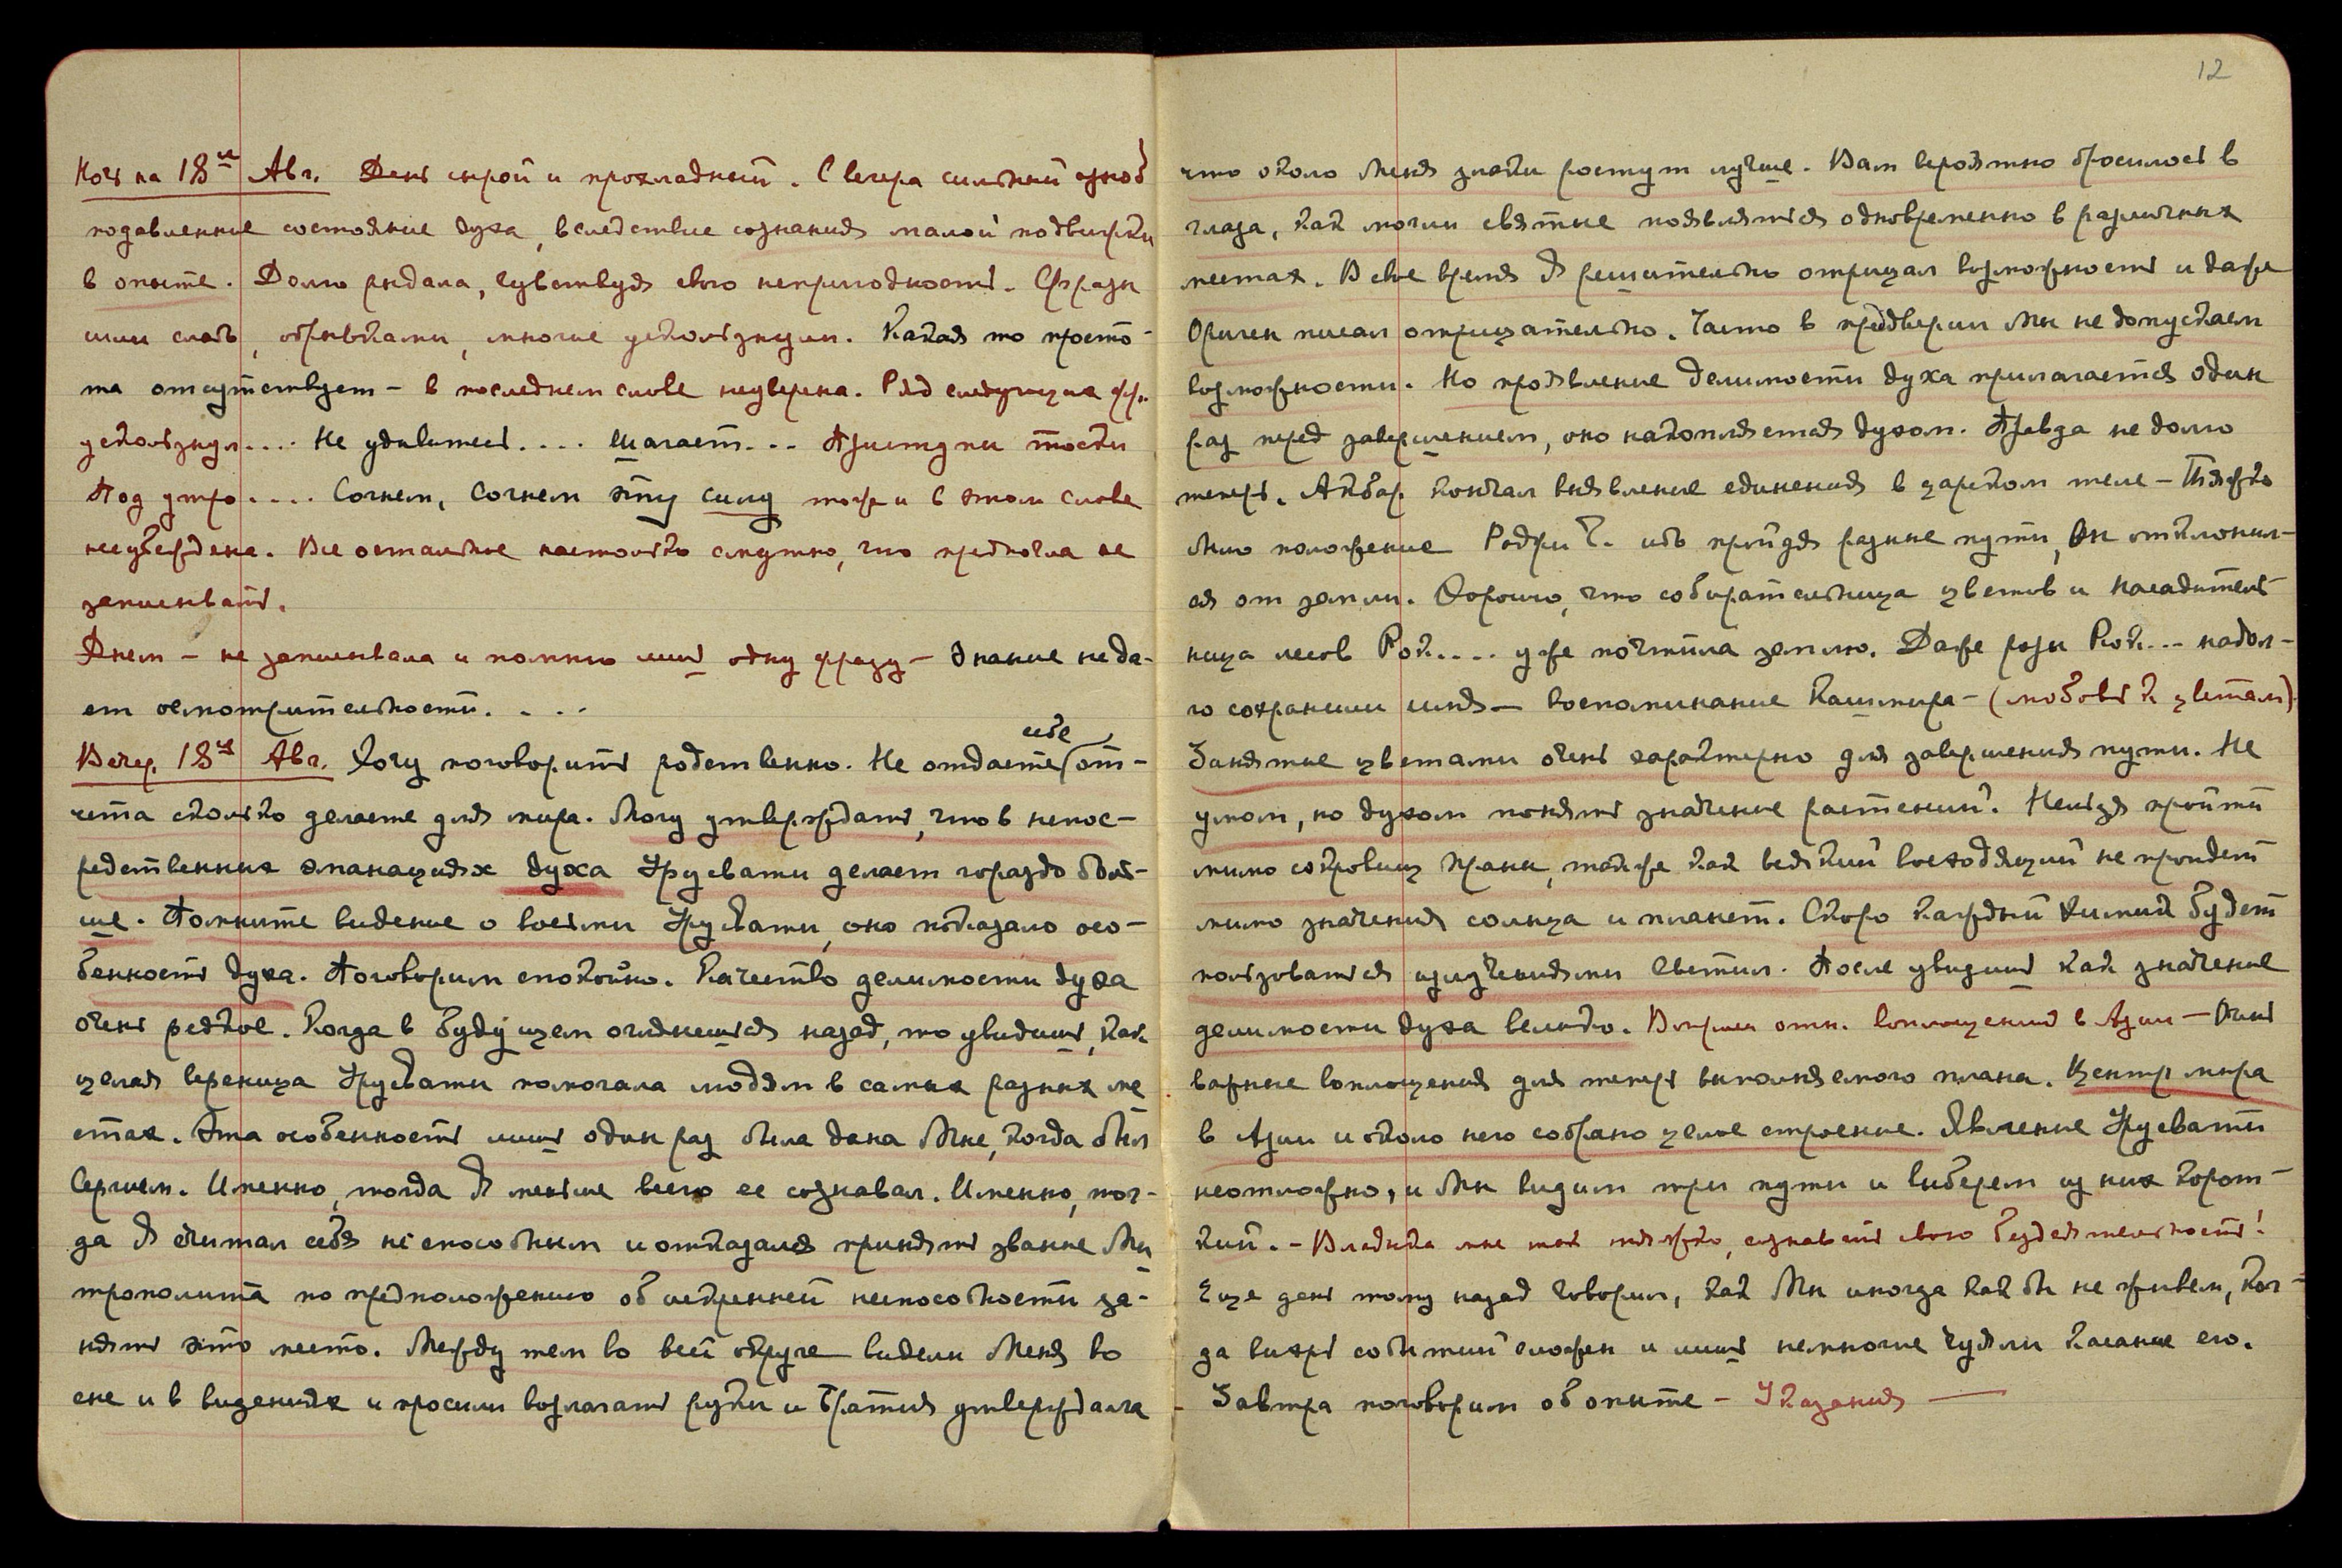 12
Ночь на 18ое Авг. День сырой и прохладный. С вечера сильный озноб
подавленное состояние духа, вследствие сознания малой подвижки
в опыте. Долго рыдала, чувствуя свою непригодность. Фразы
шли слабо, обрывками, многие ускользнули. Какая то просто-
та отсутствует – в последнем слове неуверена. Ряд следующих фр.
ускользнул.... Не удивитесь.... шагает... Приступы тоски
Под утро.... Согнем, Согнем эту силу тоже и в этом слове
неубеждена. Все остальное настолько смутно, что предпочла не
записывать.
Днем – не записывала и помню лишь одну фразу – Знание неда-
ет осмотрительности. . . .
себе
Вечер. 18ое Авг. Хочу поговорить родственно. Не отдаете от-
чета сколько делаете для мира. Могу утверждать, что в непос-
редственных эманациях духа Урусвати делает гораздо боль-
ше. Помните видение о восьми Урусвати, оно показало осо-
бенность духа. Поговорим спокойно. Качество делимости духа
очень редкое. Когда в будущем оглянешься назад, то увидишь, как
целая вереница Урусвати помогала людям в самых разных ме
стах. Эта особенность лишь один раз была дана Мне, когда был
Сергием. Именно, тогда Я меньше всего ее сознавал. Именно, тог-
да Я считал себя не способным и отказался принять звание Ми
трополита по предположению об искренней неспособности за-
нять это место. Между тем во всей округе видели Меня во
сне и в видениях и просили возлагать руки и Братия утверждала
что около Меня злаки ростут лучше. Вам вероятно бросилось в
глаза, как могли святые появляться одновременно в различных
местах. В свое время Я решительно отрицал возможность и даже
Ориген писал отрицательно. Часто в преддверии Мы не допускаем
возможности. Но проявление делимости духа прилагается один
раз перед завершением, оно накопляется духом. Правда не долго
теперь. Акбар кончал выявление единения в царском теле – Тяжко
было положение Роджи Б. ибо пройдя разные пути, Он отклонил-
ся от земли. Хорошо, что собирательница цветов и насадитель-
ница лесов Рок.... уже почтила землю. Даже розы Рок... надол-
го сохранили имя – воспоминание Кашмира – (любовь к цветам)
Занятие цветами очень характерно для завершения пути. Не
умом, но духом понять значение растений. Нельзя пройти
мимо сокровищ праны, также как всякий восходящий не пройдет
мимо значения солнца и планет. Скоро каждый химик будет
пользоваться излучениями Светил. После увидишь как значение
делимости духа велико. Вопрос отн. воплощений в Азии – Очень
важные воплощения для теперь выполняемого плана. Центр мира
в Азии и около него собрано целое строение. Явление Урусвати
неотложно, и Мы видим три пути и выберем из них корот-
кий. – Владыка мне так тяжко, сознавать свою бездеятельность!
Еще день тому назад говорил, как Мы иногда как бы не живем, ког-
да вихрь событий сложен и лишь немногие чуяли касание его.
Завтра поговорим об опыте – Указания —